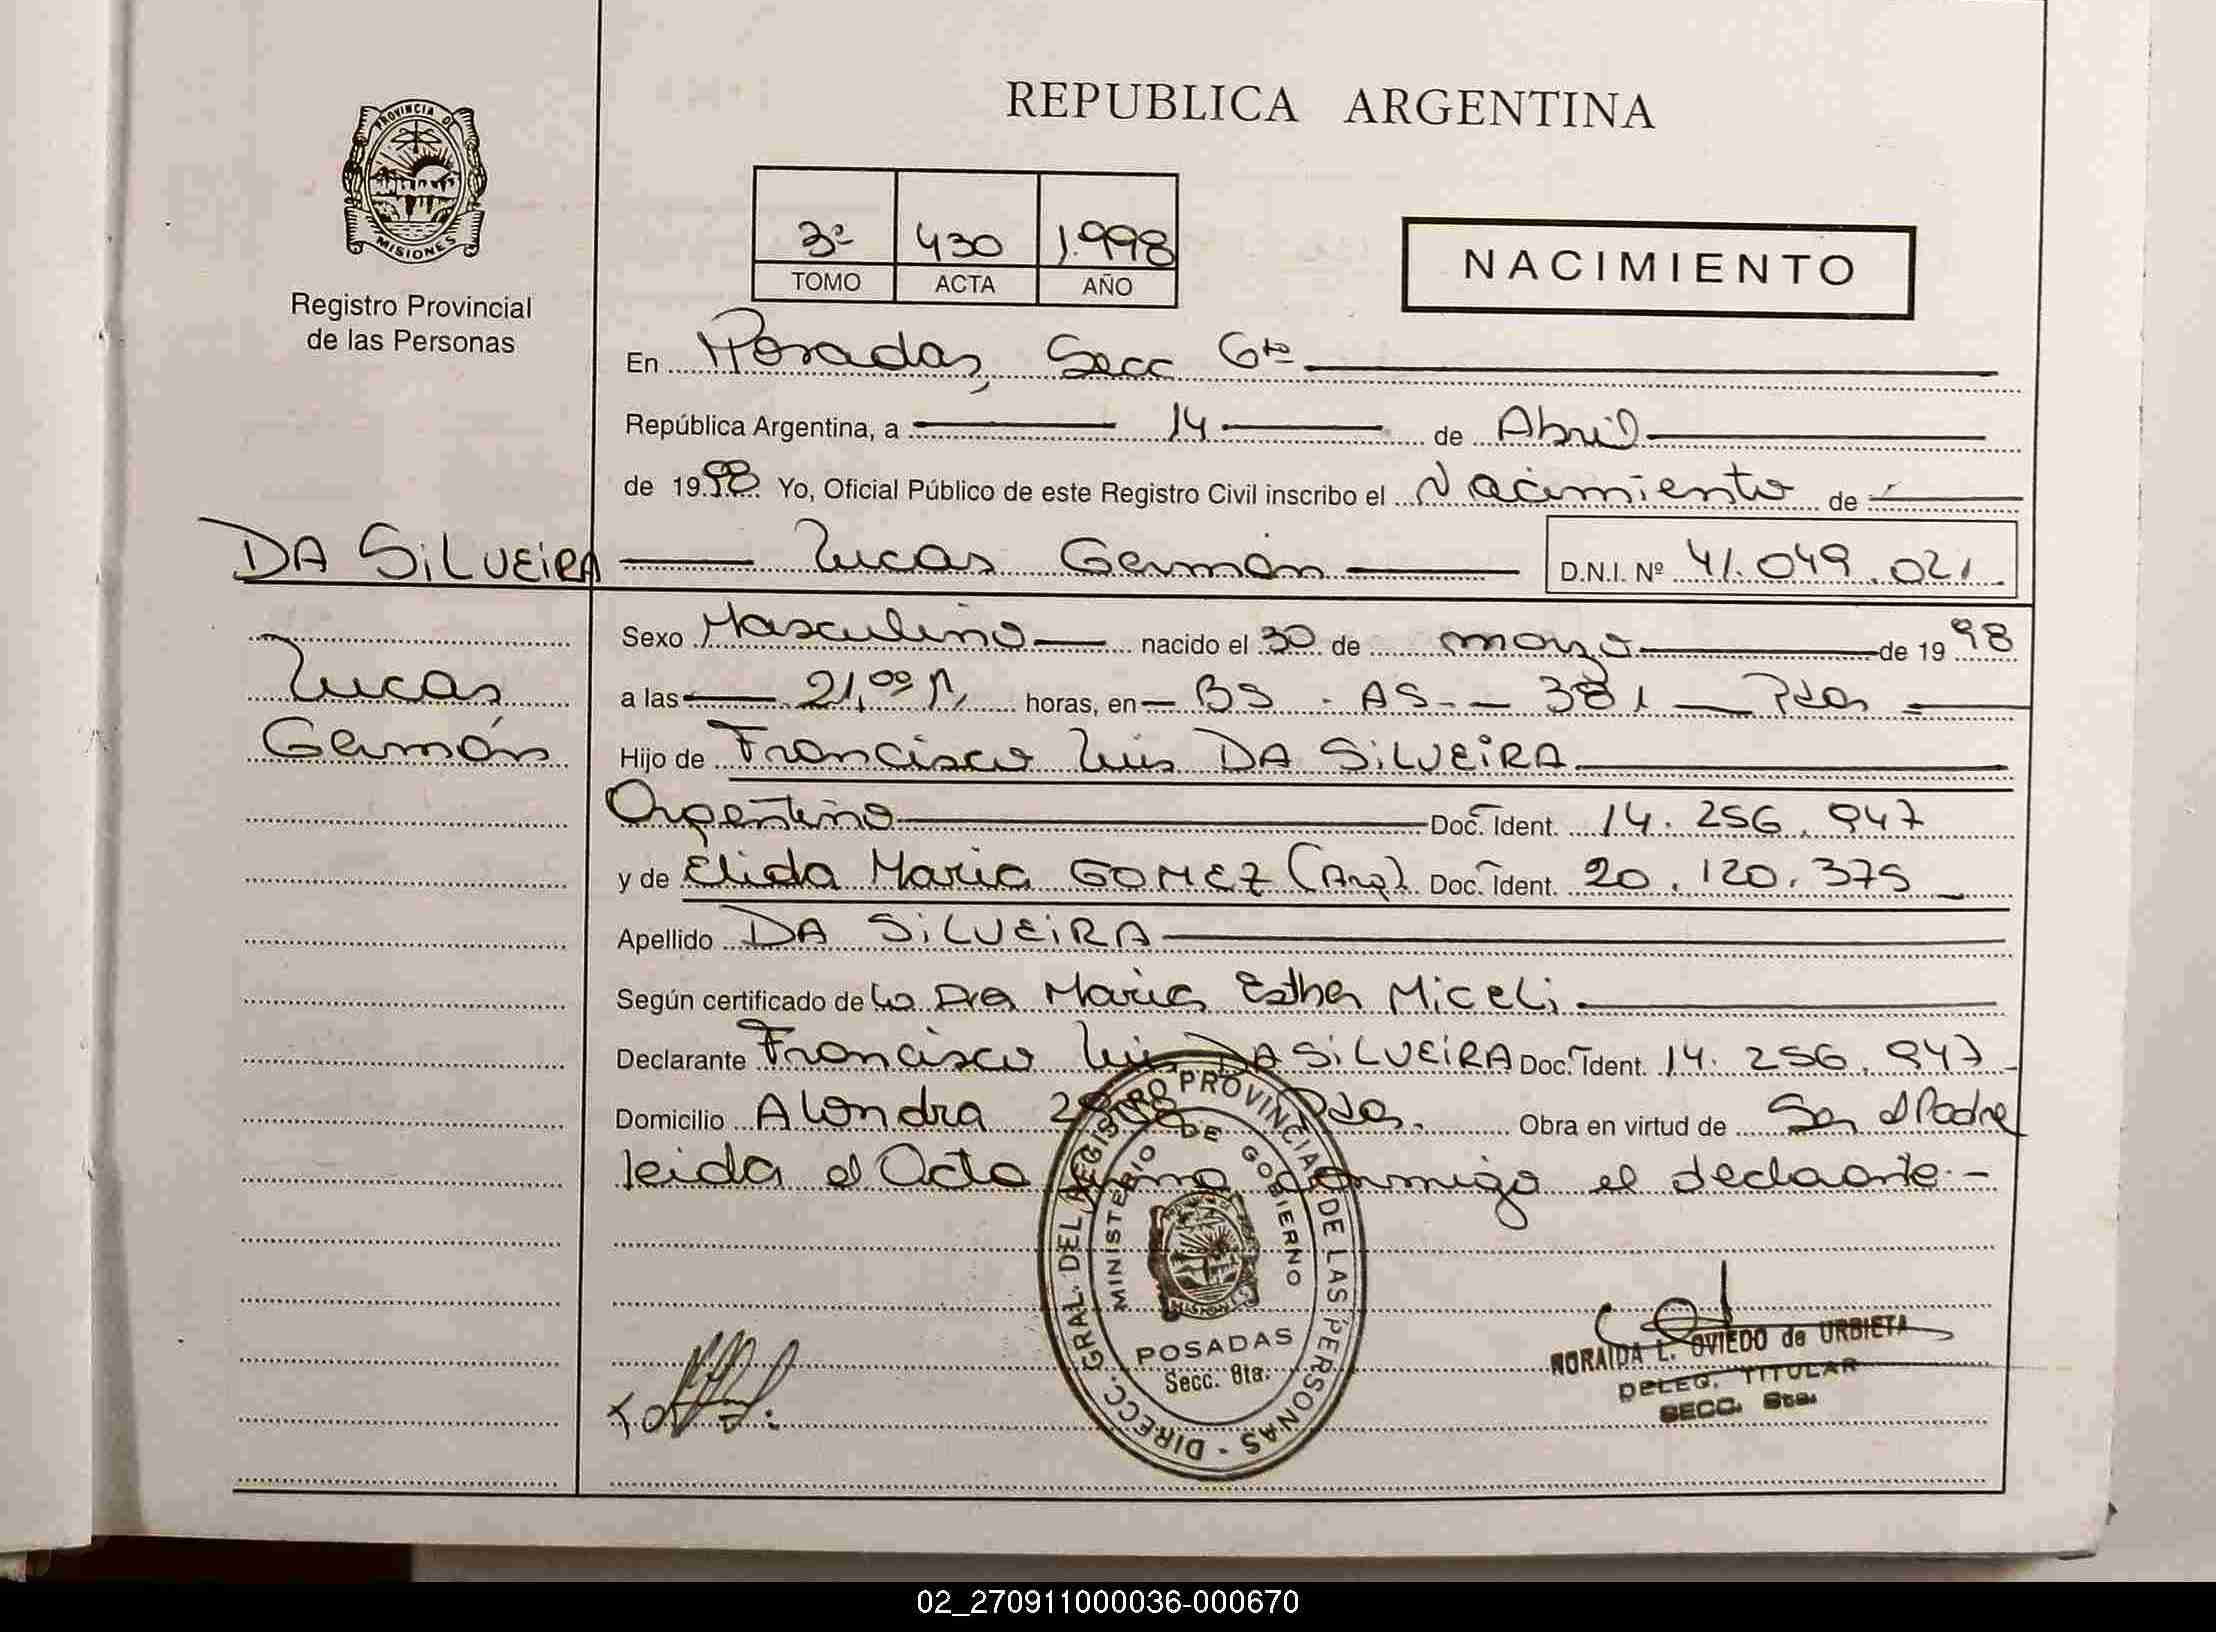 REPUBLICA ARGENTINA
PROVINCIA DE
MISIONES
Registro Provincial
de las Personas
3º 430 1.998
TOMO ACTA AÑO
NACIMIENTO
En Posadas, Secc 6ta
República Argentina, a 14 de Abril
de 1998 Yo, Oficial Público de este Registro Civil inscribo el Nacimiento de
DA SiLVEiRA Lucas Germán D.N.I. Nº 41.049.021
Lucas
Germán
Sexo Masculino nacido el 30 de marzo de 1998
a las 21,00 horas, en BS - AS - 381 - Pdas
Hijo de Francisco Luis DA SiLVEiRA
Argentino Doc. Ident. 14.256.947
y de Elida Maria GOMEZ (Arg) Doc. Ident. 20.120.375
Apellido DA SiLVEiRA
Según certificado de la Dra Maria Esther Miceli
Declarante Francisco Luis DA SiLVEiRA Doc. Ident. 14.256.947
Domicilio Alondra Pdas. Obra en virtud de Ser el Padre
leida el Acta firma conmigo el declarante.-
DIRECC. GRAL. DEL REGISTRO PROVINCIAL DE LAS PERSONAS -
MINISTERIO DE GOBIERNO
MISIONES
POSADAS
Secc. 6ta.
NORAIDA L. OVIEDO de URBIETA
DELEG. TITULAR
SECC. 6ta.
02_270911000036-000670